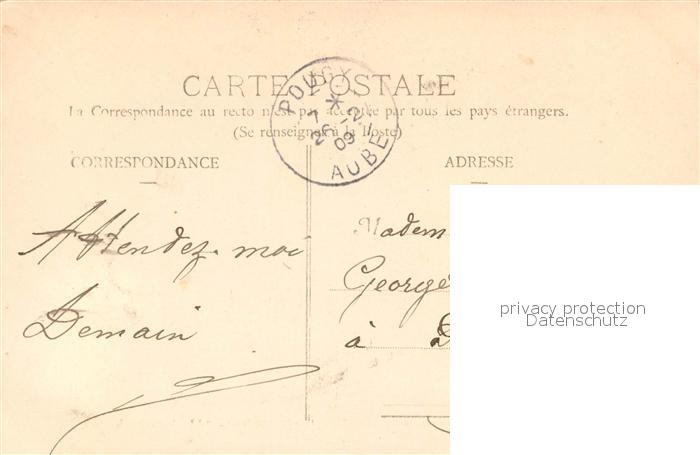 CARTE POSTALE
La Correspondance au recto n'est pas acceptée par tous les pays étrangers.
(Se renseigner à la Poste)
POUGY
7 * 2
26 - 2
09
AUBE
CORRESPONDANCE
ADRESSE
Attendez-moi
Demain
Madem
George
à D
privacy protection
Datenschutz